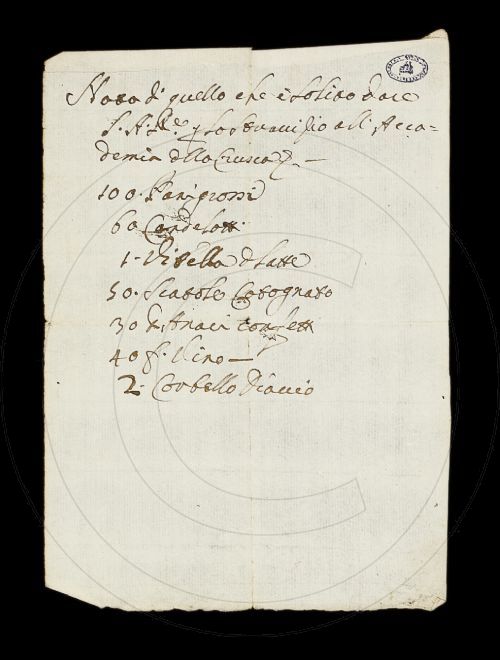 Nota di quello che è solito dare
S. A. R.e p lo stravizio all' Acca-
demia della Crusca —
100. Pani grossi
60 Candelotti
1. Vitella di latte
50. Scatole Cotognato
30 Anaci confetti
40 f. Vino —
2. Corbello Diaccio